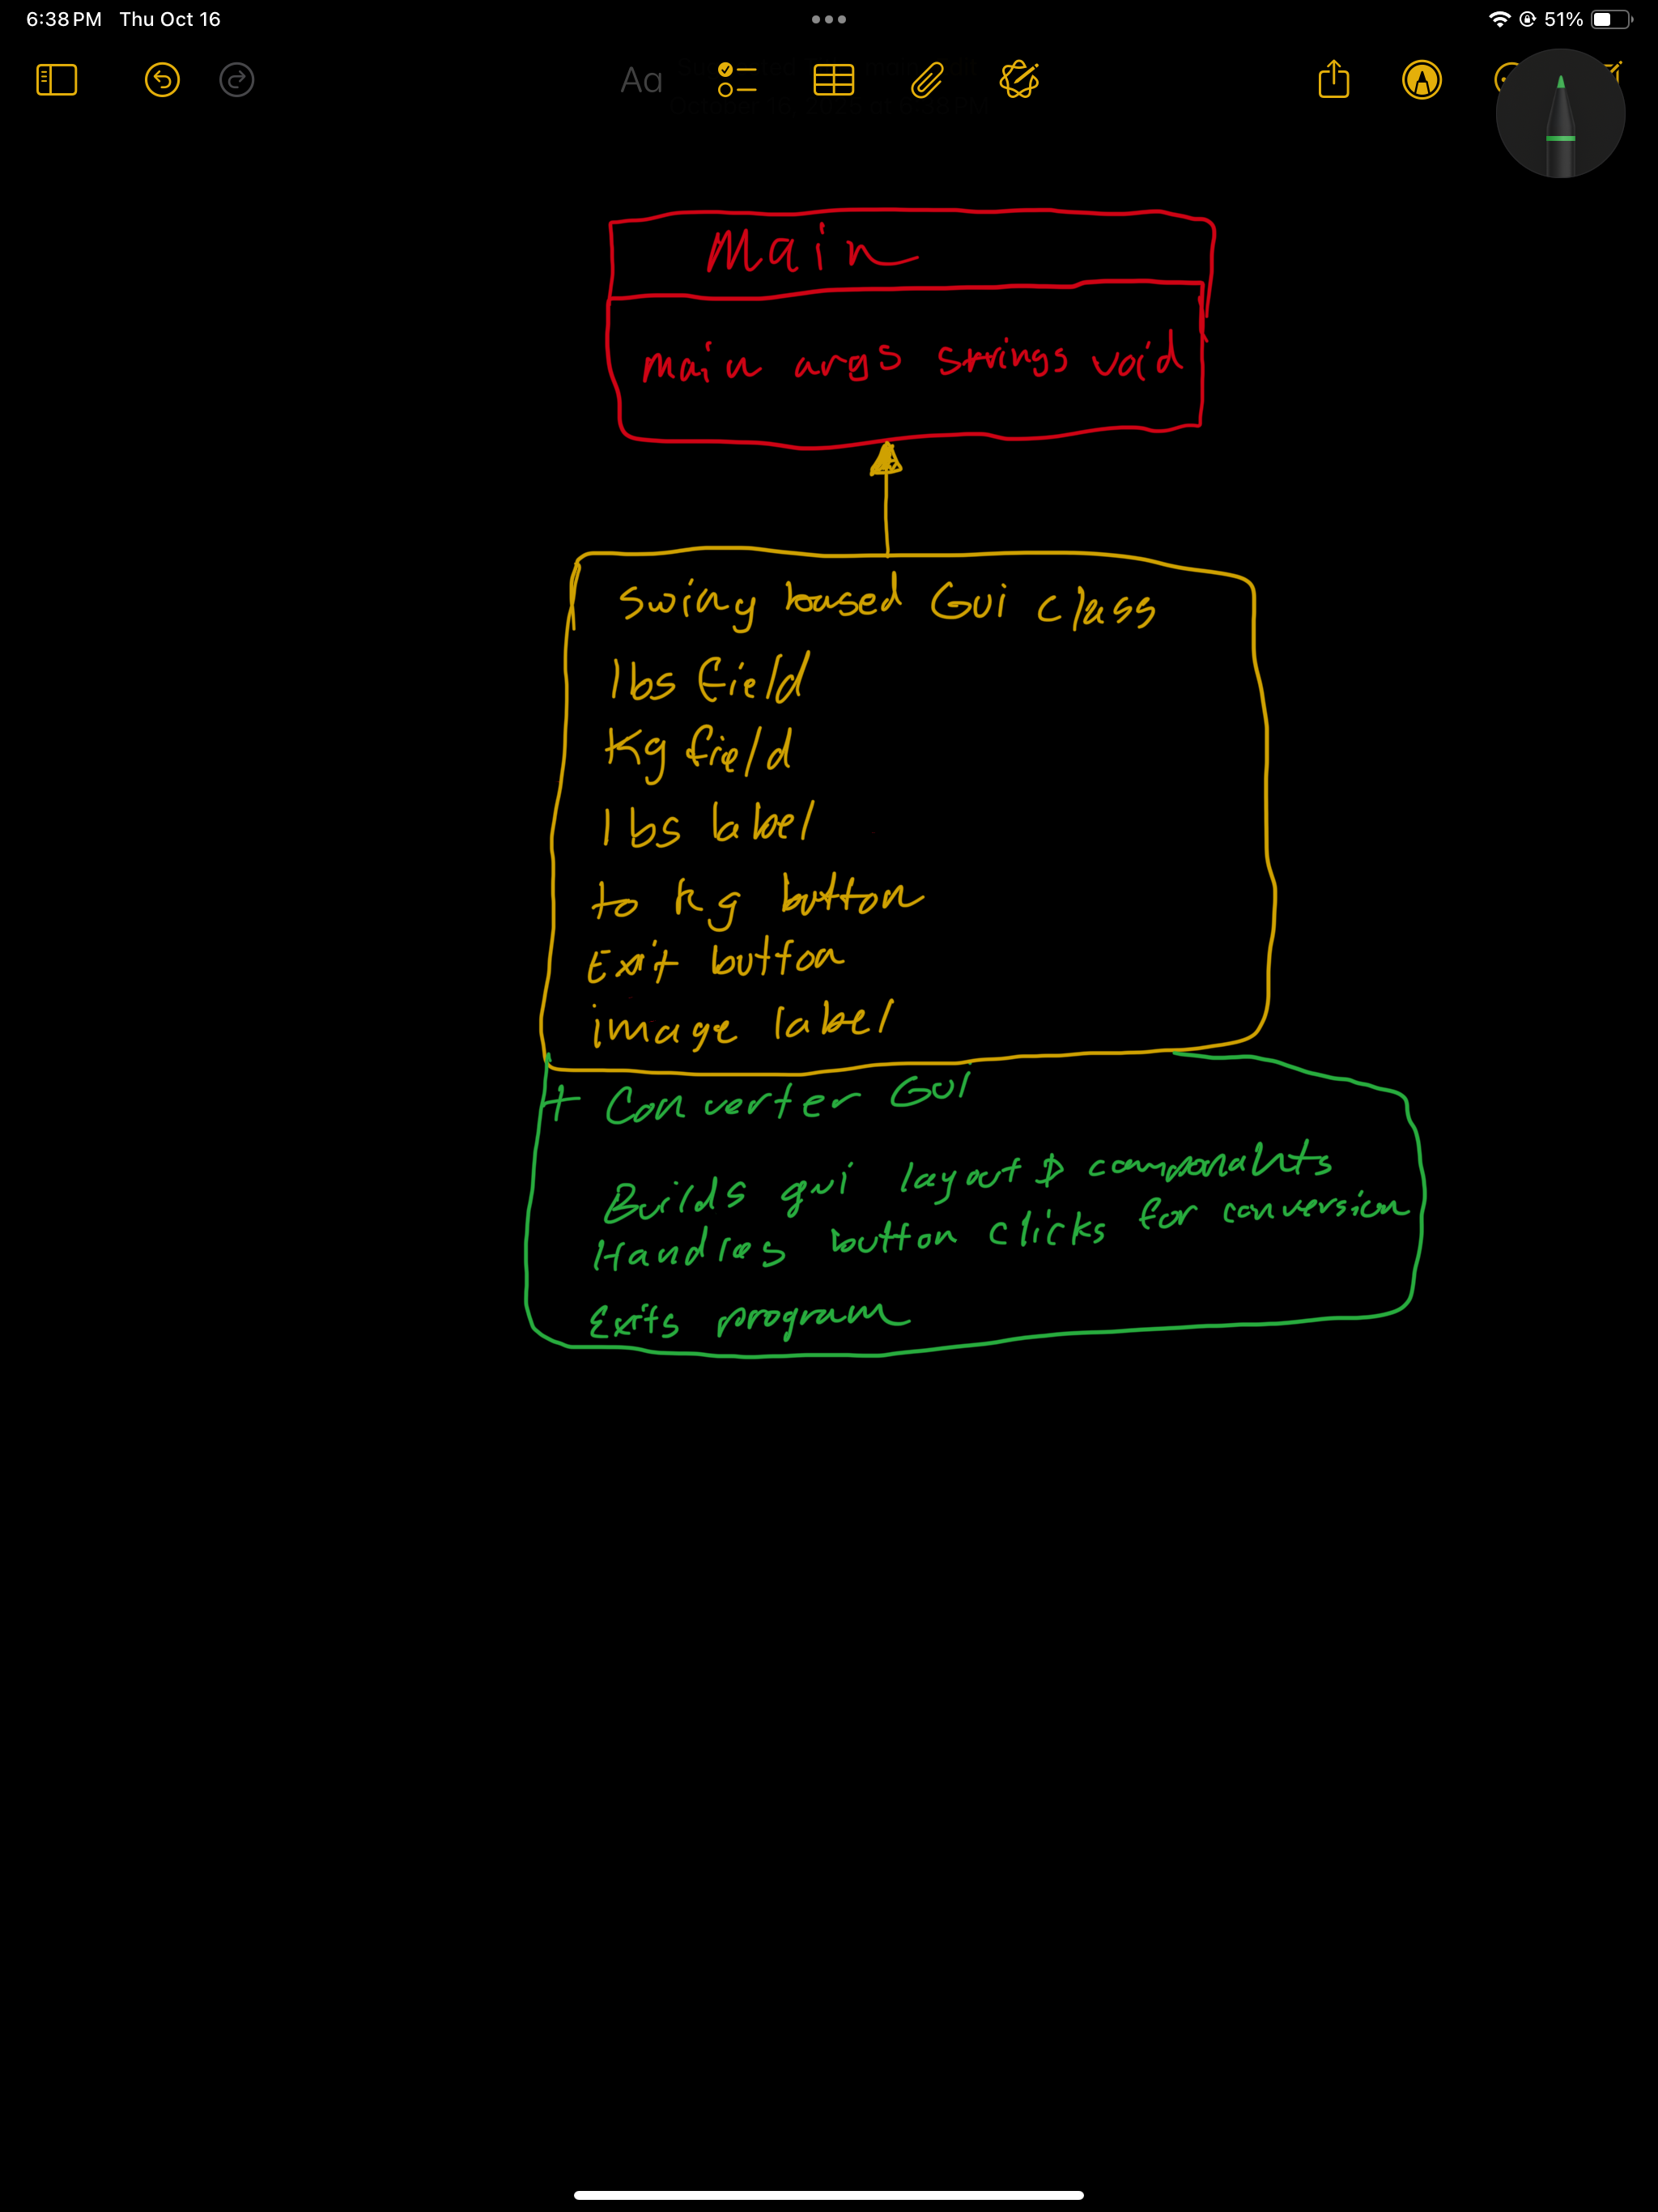 6:38 PM Thu Oct 16
51%
Aa
Main
main args strings void
Swing based Gui class
lbs field
Kg field
lbs label
to kg button
Exit button
image label
+ Converter GUI
Builds gui layout & componants
Handles button clicks for conversion
Exits program